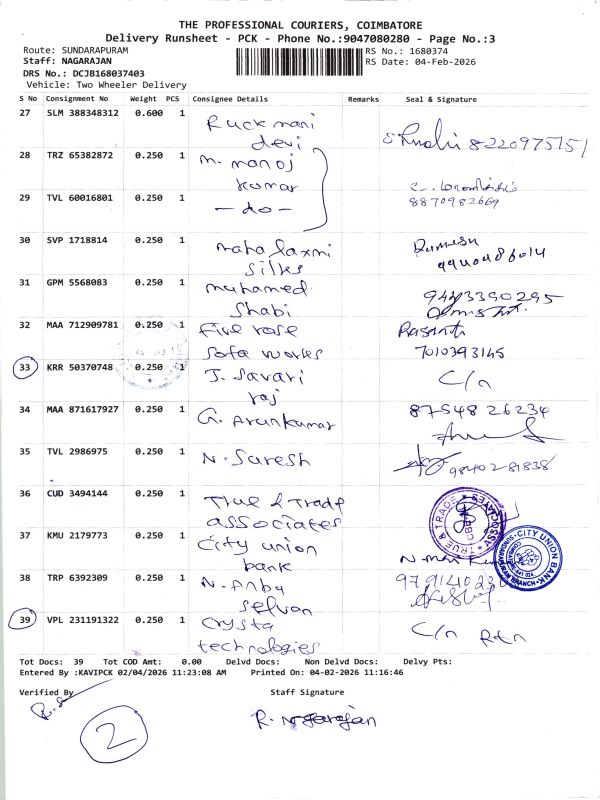 THE PROFESSIONAL COURIERS, COIMBATORE
Delivery Runsheet - PCK - Phone No.:9047080280 - Page No.:3
Route: SUNDARAPURAM RS No.: 1680374
Staff: NAGARAJAN RS Date: 04-Feb-2026
DRS No.: DCJB168037403
Vehicle: Two Wheeler Delivery
S No Consignment No Weight PCS Consignee Details Remarks Seal & Signature
27 SLM 388348312 0.600 1 Ruckmani
devi 8220975151
28 TRZ 65382872 0.250 1 M. Manoj
Kumar
29 TVL 60016801 0.250 1 - do - 8870982669
30 SVP 1718814 0.250 1 Mahalaxmi Ramesh
Silks
31 GPM 5568083 0.250 1 Muhamed 9443390295
Shabi
32 MAA 712909781 0.250 1 Five rose
Sofa works 7010393145
33 KRR 50370748 0.250 1 J. Savari C/n
raj
34 MAA 871617927 0.250 1 G. Arunkumar 87548 26234
35 TVL 2986975 0.250 1 N. Suresh 98402 81838
36 CUD 3494144 0.250 1 True & Trade
associates TRUE & TRADE ASSOCIATES
37 KMU 2179773 0.250 1 City union CITY UNION BANK
bank
38 TRP 6392309 0.250 1 N. Anbu
Selvan
39 VPL 231191322 0.250 1 Crysta C/n Rtn
technologies
Tot Docs: 39 Tot COD Amt: 0.00 Delvd Docs: Non Delvd Docs: Delvy Pts:
Entered By :KAVIPCK 02/04/2026 11:23:08 AM Printed On: 04-02-2026 11:16:46
Verified By Staff Signature
R. Nagarajan
2